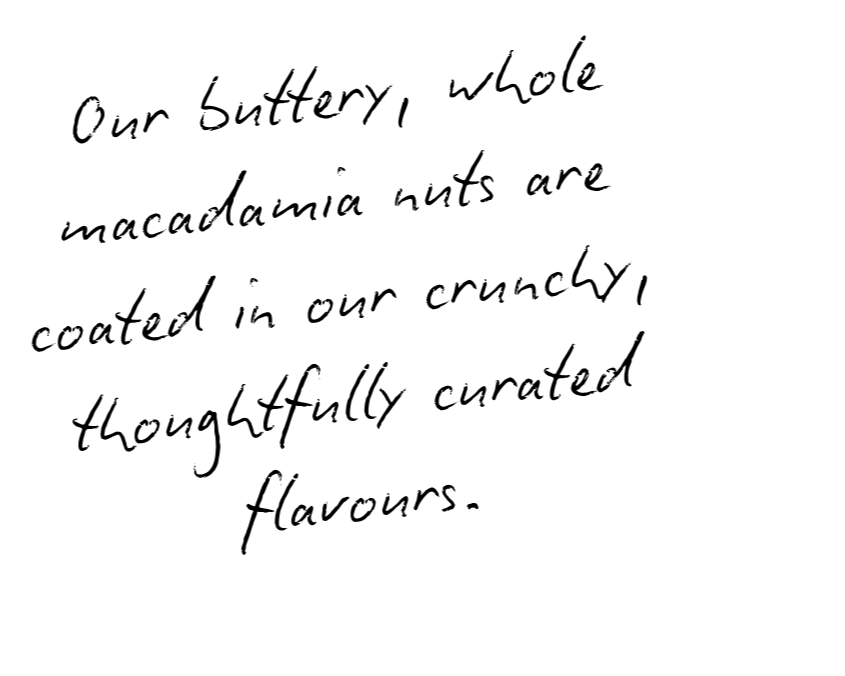 Our buttery, whole
macadamia nuts are
coated in our crunchy,
thoughtfully curated
flavours.